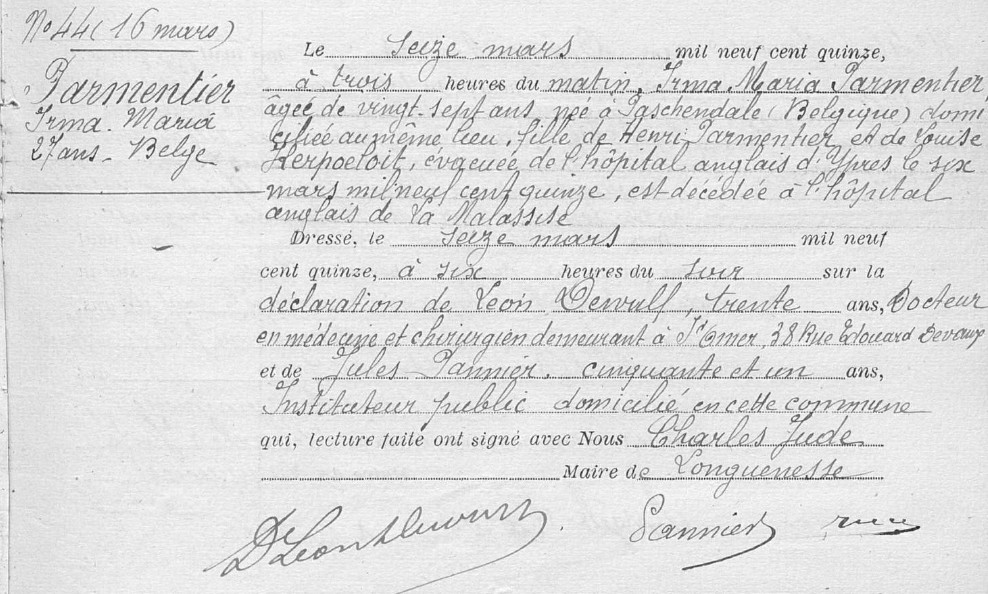 No 44 (16 mars)
Parmentier
Irma Maria
27 ans - Belge
Le seize mars mil neuf cent quinze,
à trois heures du matin, Irma Maria Parmentier,
âgée de vingt-sept ans née à Paschendale (Belgique) domi
ciliée au même lieu, fille de Henri Parmentier et de Louise
évacuée de l'hôpital anglais d'Ypres le six
mars mil neuf cent quinze, est décédée à l'hôpital
anglais de la Malassise
Dressé, le seize mars mil neuf
cent quinze, à six heures du soir sur la
déclaration de Léon Dewulf, trente ans, Docteur
en médecine et chirurgien demeurant à St Omer, 38 Rue Edouard Devaux
et de Jules Pannier, cinquante et un ans,
Instituteur public domicilié en cette commune
qui, lecture faite ont signé avec Nous Charles Jude
Maire de Longuenesse
Dr Leon Dewulf
Pannier